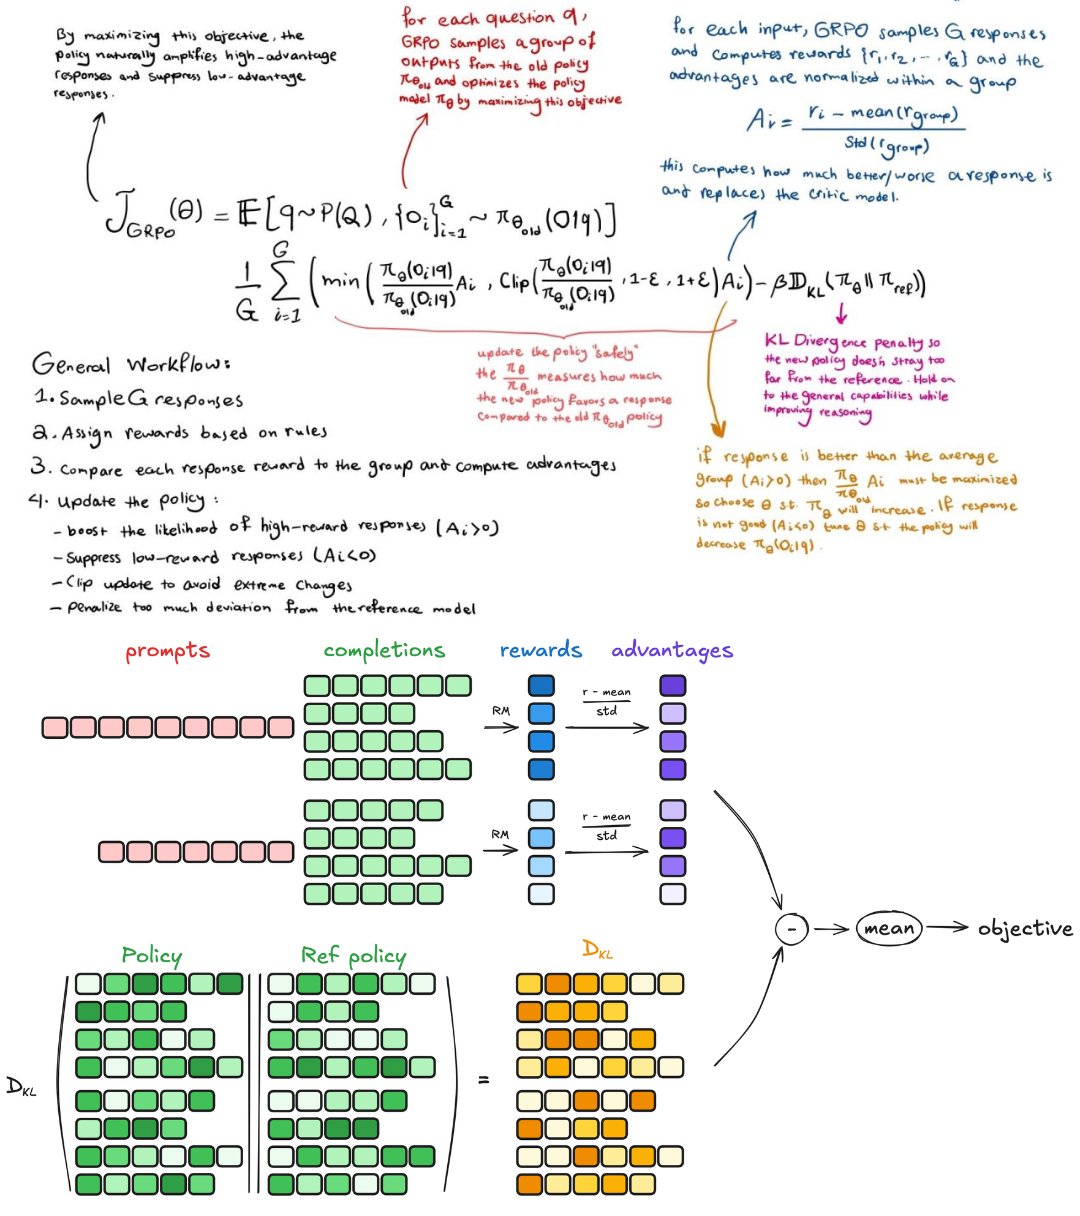 By maximizing this objective, the
policy naturally amplifies high-advantage
responses and suppress low-advantage
responses.
for each question q,
GRPO samples a group of
outputs from the old policy
π_θ_old and optimizes the policy
model π_θ by maximizing this objective
for each input, GRPO samples G responses
and computes rewards {r₁, r₂, ... , r_G} and the
advantages are normalized within a group
A_i = (r_i - mean(r_group)) / Std(r_group)
this computes how much better/worse a response is
and replaces the critic model.
J_GRPO(θ) = E[q~P(Q), {O_i}_{i=1}^G ~ π_θ_old(O|q)]
1/G Σ_{i=1}^G (min(π_θ(O_i|q)/π_θ_old(O_i|q) A_i, Clip(π_θ(O_i|q)/π_θ_old(O_i|q), 1-ε, 1+ε)A_i) - βD_KL(π_θ || π_ref))
update the policy "safely"
the π_θ/π_θ_old measures how much
the new policy favors a response
compared to the old π_θ_old policy
KL Divergence penalty so
the new policy doesn stray too
far from the reference. Hold on
to the general capabilities while
improving reasoning
if response is better than the average
group (A_i>0) then π_θ/π_θ_old A_i must be maximized
so choose θ s.t. π_θ will increase. If response
is not good (A_i<0) tune θ s.t. the policy will
decrease π_θ(O_i|q).
General Workflow:
1. Sample G responses
2. Assign rewards based on rules
3. Compare each response reward to the group and compute advantages
4. Update the policy:
- boost the likelihood of high-reward responses (A_i>0)
- Suppress low-reward responses (A_i<0)
- Clip update to avoid extreme changes
- Penalize too much deviation from the reference model
prompts completions rewards advantages
RM r - mean / std
RM r - mean / std
- mean objective
Policy Ref policy D_KL
D_KL =